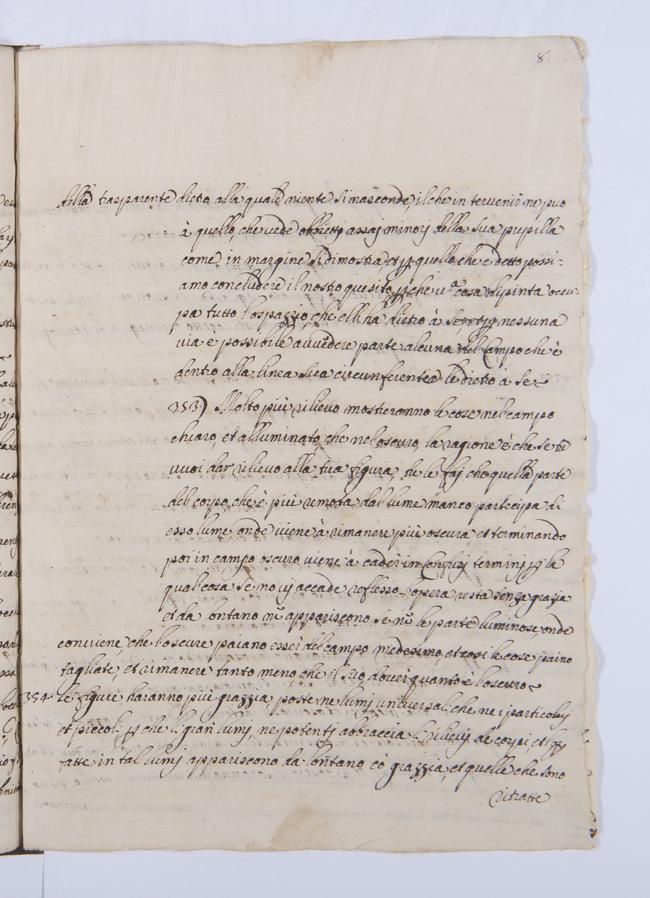 8
della trasparente dietro alla quale niente si nasconde, il che intervenire ne può
à quello, che vede obbietto assaj minorj della sua pupilla
come in margine si dimostra et p quello che è detto possi-
amo concludere il nostro quesito pche una cosa dipinta occu
pa tutto lo spazzio, che ell'ha dietro à se et p nessuna
via è possibile à vedere parte alcuna del Campo che è
dentro alla linea sua circunferentia di dietro à se
353) Molto più rilievo mostreranno le cose nel campo
chiaro, et alluminato, che nel oscuro, la ragione è che se tu
vuoi dar rilievo alla tua figura, tu le faj che quella parte
del corpo, che è più remota dal lume manco partecipa di
esso lume onde viene à rimanere più oscura et terminando
poi in campo oscuro viene à cader in Confusj terminj p la
qual cosa se no vj accade reflesso l'opera resta senza grazia
et da lontano nō appariscono se nō le parte luminose onde
conviene, che l'oscure paiano esser del campo medesimo, et così le cose paino
tagliate, et rimanere tanto meno che il suo dover quanto è l'oscuro
354 Le figure haranno più grazzia poste ne lumj universal che ne i particolarj
et piccoli, p che li gran lumj, ne potentj abbraccia li rilievj de corpi et l'op
fatte in tal lumj appariscono da lontano cō grazzia et quelle che sono
ritratte